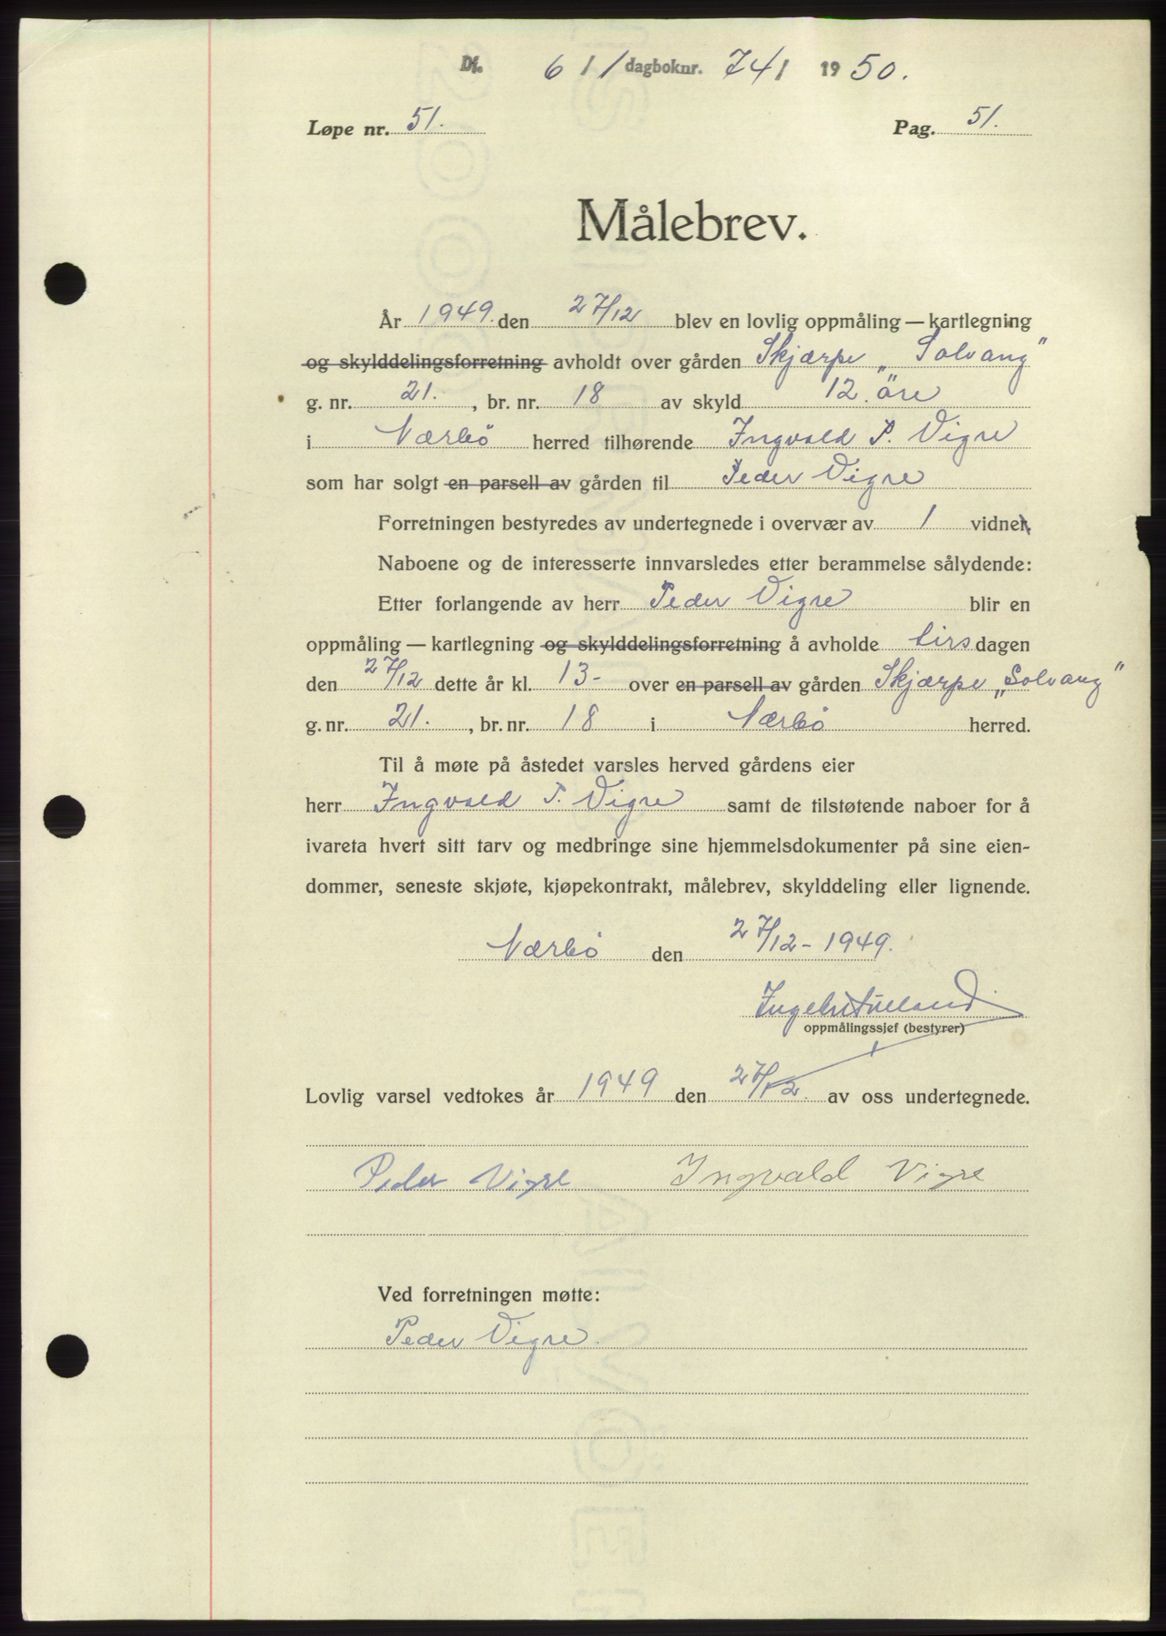 Df. 6/1 dagboknr. 74/ 1950.
Løpe nr. 51. Pag. 51.
Målebrev.
År 1949. den 27/12 blev en lovlig oppmåling — kartlegning
og skylddelingsforretning avholdt over gården Skjærpe „Solvang"
g. nr. 21. , br. nr. 18 av skyld 12. öre
i Nærbö herred tilhørende Ingvald P. Vigre
som har solgt en parsell av gården til Peder Vigre
Forretningen bestyredes av undertegnede i overvær av 1 vidner.
Naboene og de interesserte innvarsledes etter berammelse sålydende:
Etter forlangende av herr Peder Vigre blir en
oppmåling — kartlegning og skylddelingsforretning å avholde tirsdagen
den 27/12 dette år kl. 13- over en parsell av gården Skjærpe „Solvang"
g. nr. 21. , br. nr. 18 i Nærbö herred.
Til å møte på åstedet varsles herved gårdens eier
herr Ingvald P. Vigre samt de tilstøtende naboer for å
ivareta hvert sitt tarv og medbringe sine hjemmelsdokumenter på sine eien-
dommer, seneste skjøte, kjøpekontrakt, målebrev, skylddeling eller lignende.
Nærbö den 27/12-1949.
oppmålingssjef (bestyrer)
Lovlig varsel vedtokes år 1949 den 27/12. av oss undertegnede.
Peder Vigre Ingvald Vigre
Ved forretningen møtte:
Peder Vigre.